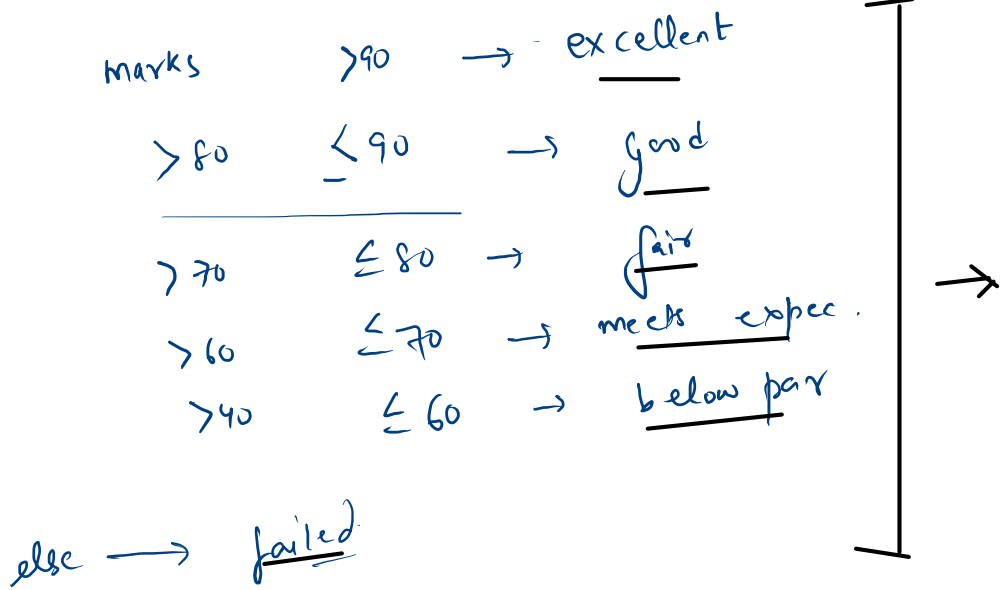 marks >90 → excellent
>80 ≤90 → good
>70 ≤80 → fair
>60 ≤70 → meets expec.
>40 ≤60 → below par
else → failed